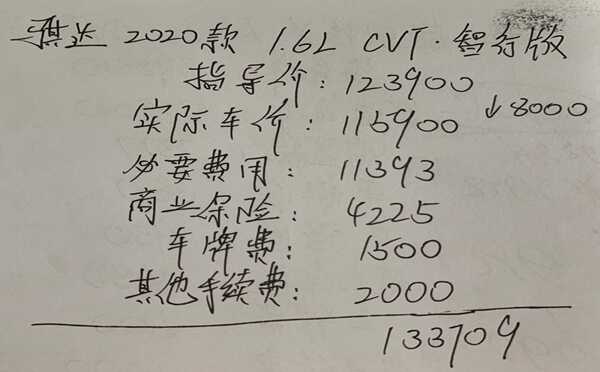 骐达 2020款 1.6L CVT·智行版
指导价: 123900
实际车价: 115900 ↓8000
必要费用: 11393
商业保险: 4225
车牌费: 1500
其他手续费: 2000
133709